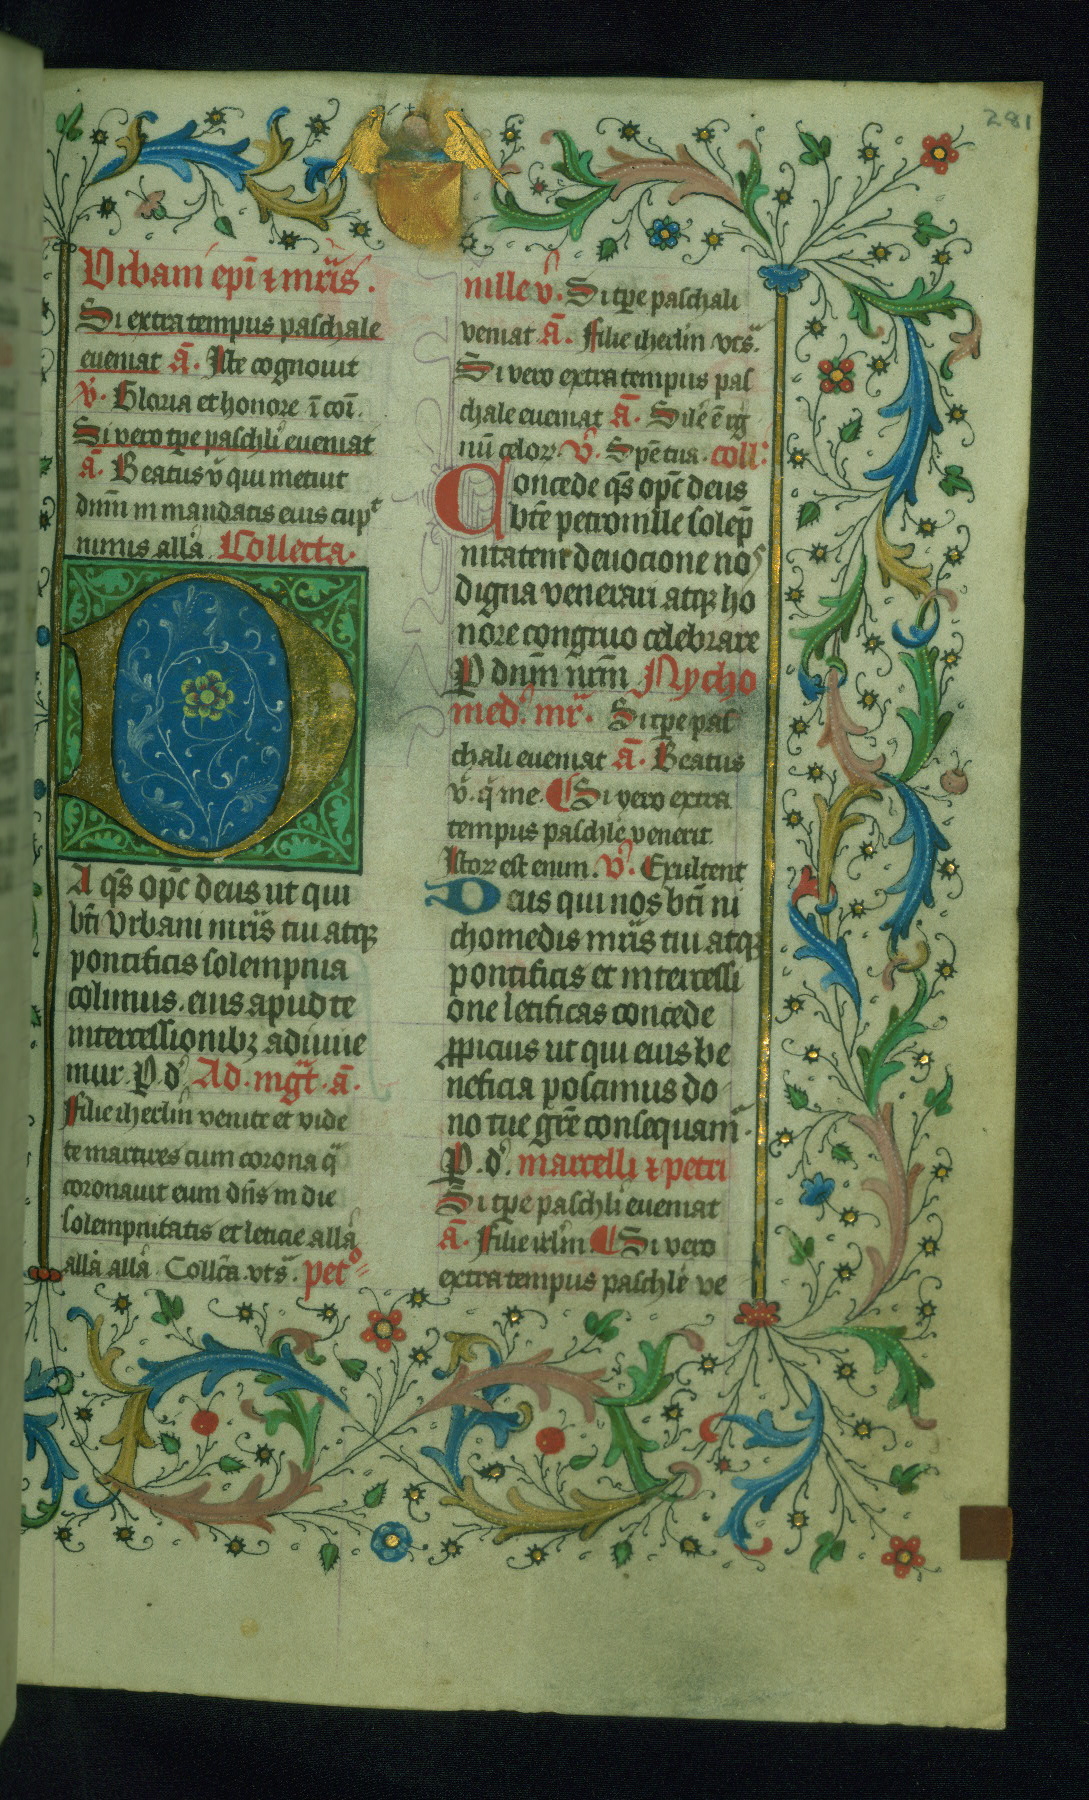 281
Urbani epi̅ ⁊ mr̅is.
Si extra tempus paschale
eueniat a̅. Iste cognouit
v̉. Gloria et honore i̅ coi̅.
Si vero tp̅e paschli̅ eueniat
a̅. Beatus v̉ qui metuit
dnm̅ in mandatis eius cupͭ
nimis alla̅. Collecta.
DA qs̅ opc̅ deus ut qui
bt̅i Vrbani mr̅is tui atqꝫ
pontificis solempnia
colimus. eius apud te
intercessionibꝫ adiuue
mur. P. d̉. Ad. mgt̅. a̅.
Filie iherlm̅ venite et vide
te martires cum corona q̅
coronauit eum dn̅s in die
solempnitatis et leticie alla̅
alla̅ alla̅. Collc̅a. vts̅. pet°
nille v̉. Si tp̅e paschali
veniat a̅. Filie iherlm̅ vts̅.
Si vero extra tempus pas
chale eueniat a̅. Sil̅e e̅ rg
nu̅ celoꝝ. v̉. Spe̅ tua. coll:
Concede qs̅ opc̅ deus
bt̅e petronille solep̅
nitatem deuocione noˢ
digna venerari atqꝫ ho
nore congruo celebrare
P dnm̅ nrm̅ Nycho
med̉. mr̅. Si tp̅e pas
chali eueniat a̅. Beatus
v̉. q̅ me. ¶ Si vero extra
tempus paschle̅ venerit.
Istoꝝ est enim. v̉. Exultent
Deus qui nos bt̅i ni
chomedis mr̅is tui atqꝫ
pontificis et intercessi
one letificas concede
ꝓpicius ut qui eius be
neficia poscimus do
no tue gr̅e consequam̅.
P. d̉. marcelli ⁊ petri
Si tp̅e paschli̅ eueniat
a̅. Filie irlm̅. ¶ Si vero
extra tempus paschle̅ ve